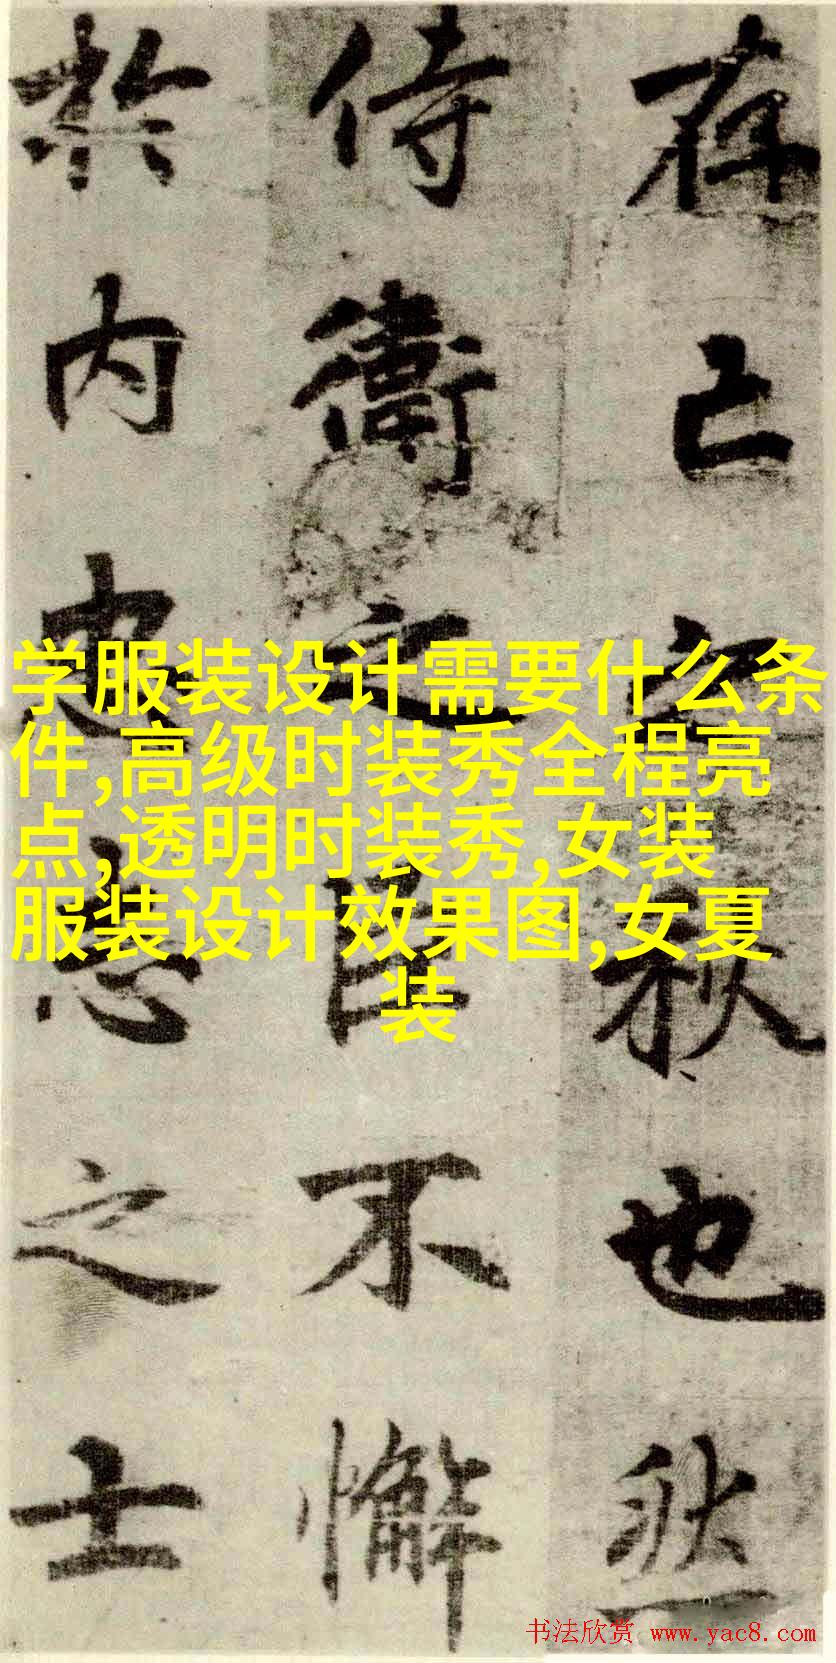 存亡之秋也然
侍衛之臣不懈
於内忠志之士
学服装设计需要什么条
件,高级时装秀全程亮
点,透明时装秀,女装
服装设计效果图,女夏
装
书法欣赏 www.yac8.com